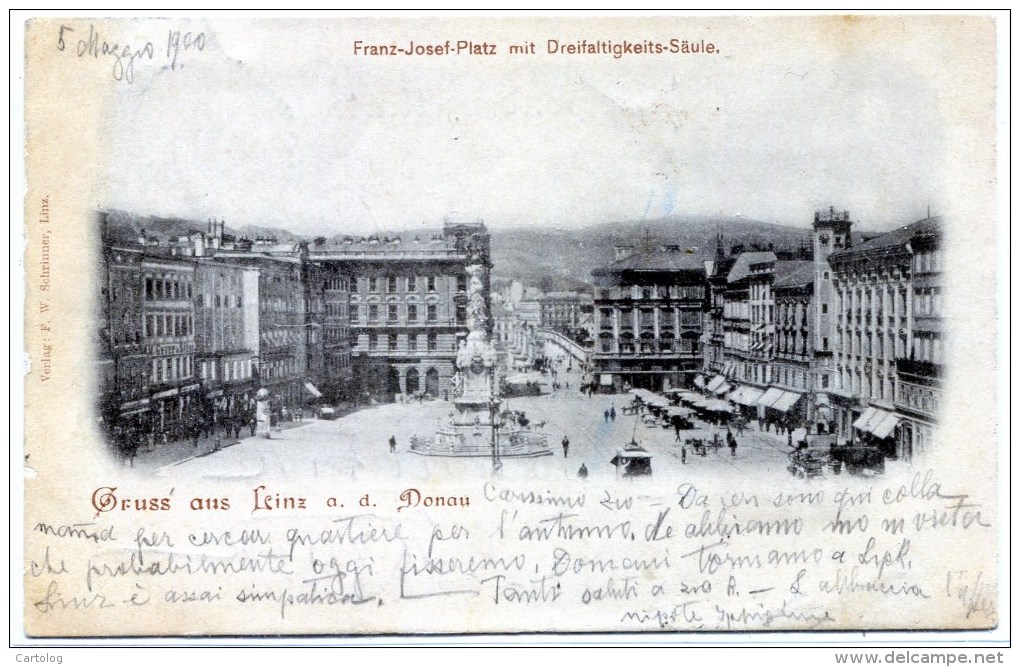 5 Maggio 1900
Franz-Josef-Platz mit Dreifaltigkeits-Säule.
Verlag: F. W. Schrinner, Linz.
Gruss aus Linz a. d. Donau
Carissimo zio – Da ieri sono qui colla
per cercar quartiere per l'autunno. Ne abbiamo uno in vista
che probabilmente oggi fisseremo. Domani torniamo a
Linz è assai simpatica. Tanti saluti a zia A. – L'abbraccia
nipote
Cartolog
www.delcampe.net